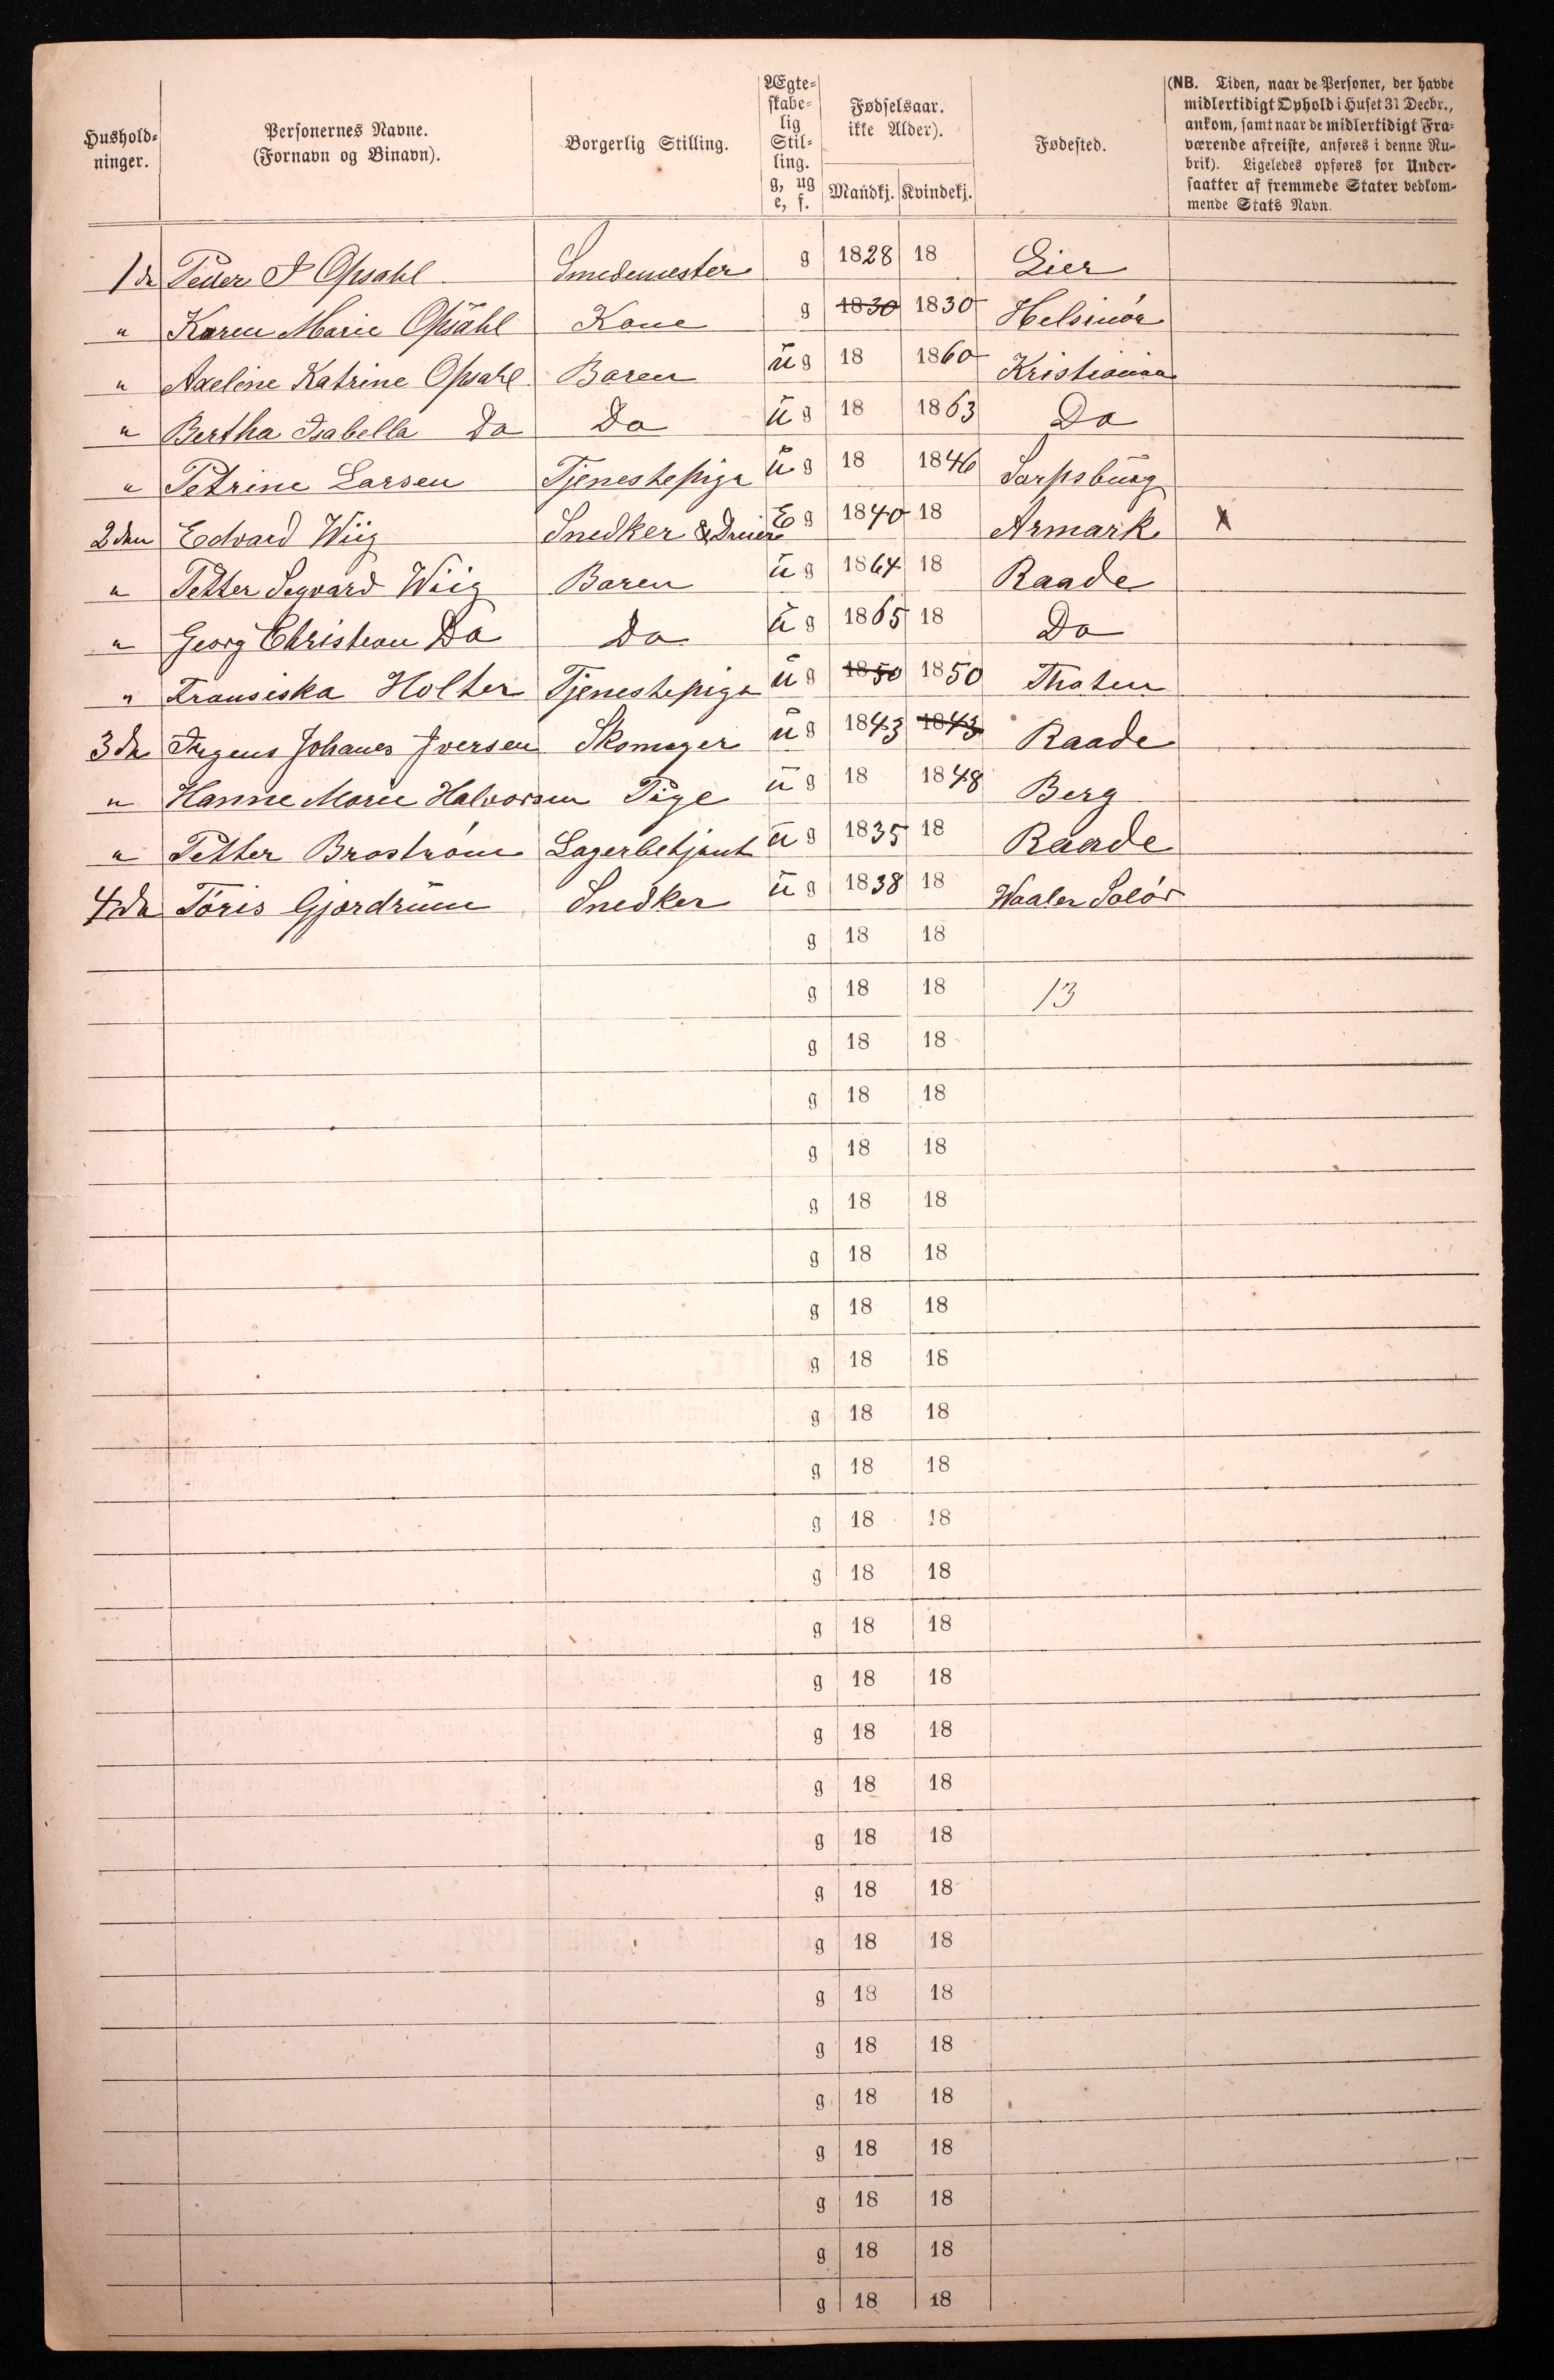 Hushold-
ninger.
Personernes Navne.
(Fornavn og Binavn).
Borgerlig Stilling.
Ægte-
skabe-
lig
Stil-
ling.
g, ug
e, f.
Fødselsaar.
ikke Alder).
Mandkj. Kvindekj.
Fødested.
(NB. Tiden, naar de Personer, der havde
midlertidigt Ophold i Huset 31 Decbr.,
ankom, samt naar de midlertidigt Fra-
værende afreiste, anføres i denne Ru-
brik). Ligeledes opføres for Under-
saatter af fremmede Stater vedkom-
mende Stats Navn.
1 de Peder P Opsahl Smedemester g 1828 18 Lier
" Karen Marie Opsahl Kone g 1830 1830 Helsinör
" Axeline Katrine Opsahl Baren ug 18 1860 Kristiania
" Bertha Isabella Do Do ug 18 1863 Do
" Petrine Larsen Tjenestepige ug 18 1846 Sarpsburg
2 den Edvard Wiig Snedker & Dreier E g 1840 18 Armark X
" Petter Segvard Wiig Baren ug 1864 18 Raade
" Georg Christian Do Do ug 1865 18 Do
" Fransiska Holter Tjenestepige ug 1850 1850 Thoten
3 de Jrgens Johanes Iversen Skomager ug 1843 1843 Raade
" Hanne Marie Halvorsen Pige ug 18 1848 Berg
" Petter Broström Lagerbetjent ug 1835 18 Raade
4 de Töris Gjordrum Snedker ug 1838 18 Waaler Solör
g 18 18
g 18 18 13
g 18 18
g 18 18
g 18 18
g 18 18
g 18 18
g 18 18
g 18 18
g 18 18
g 18 18
g 18 18
g 18 18
g 18 18
g 18 18
g 18 18
g 18 18
g 18 18
g 18 18
g 18 18
g 18 18
g 18 18
g 18 18
g 18 18
g 18 18
g 18 18
g 18 18